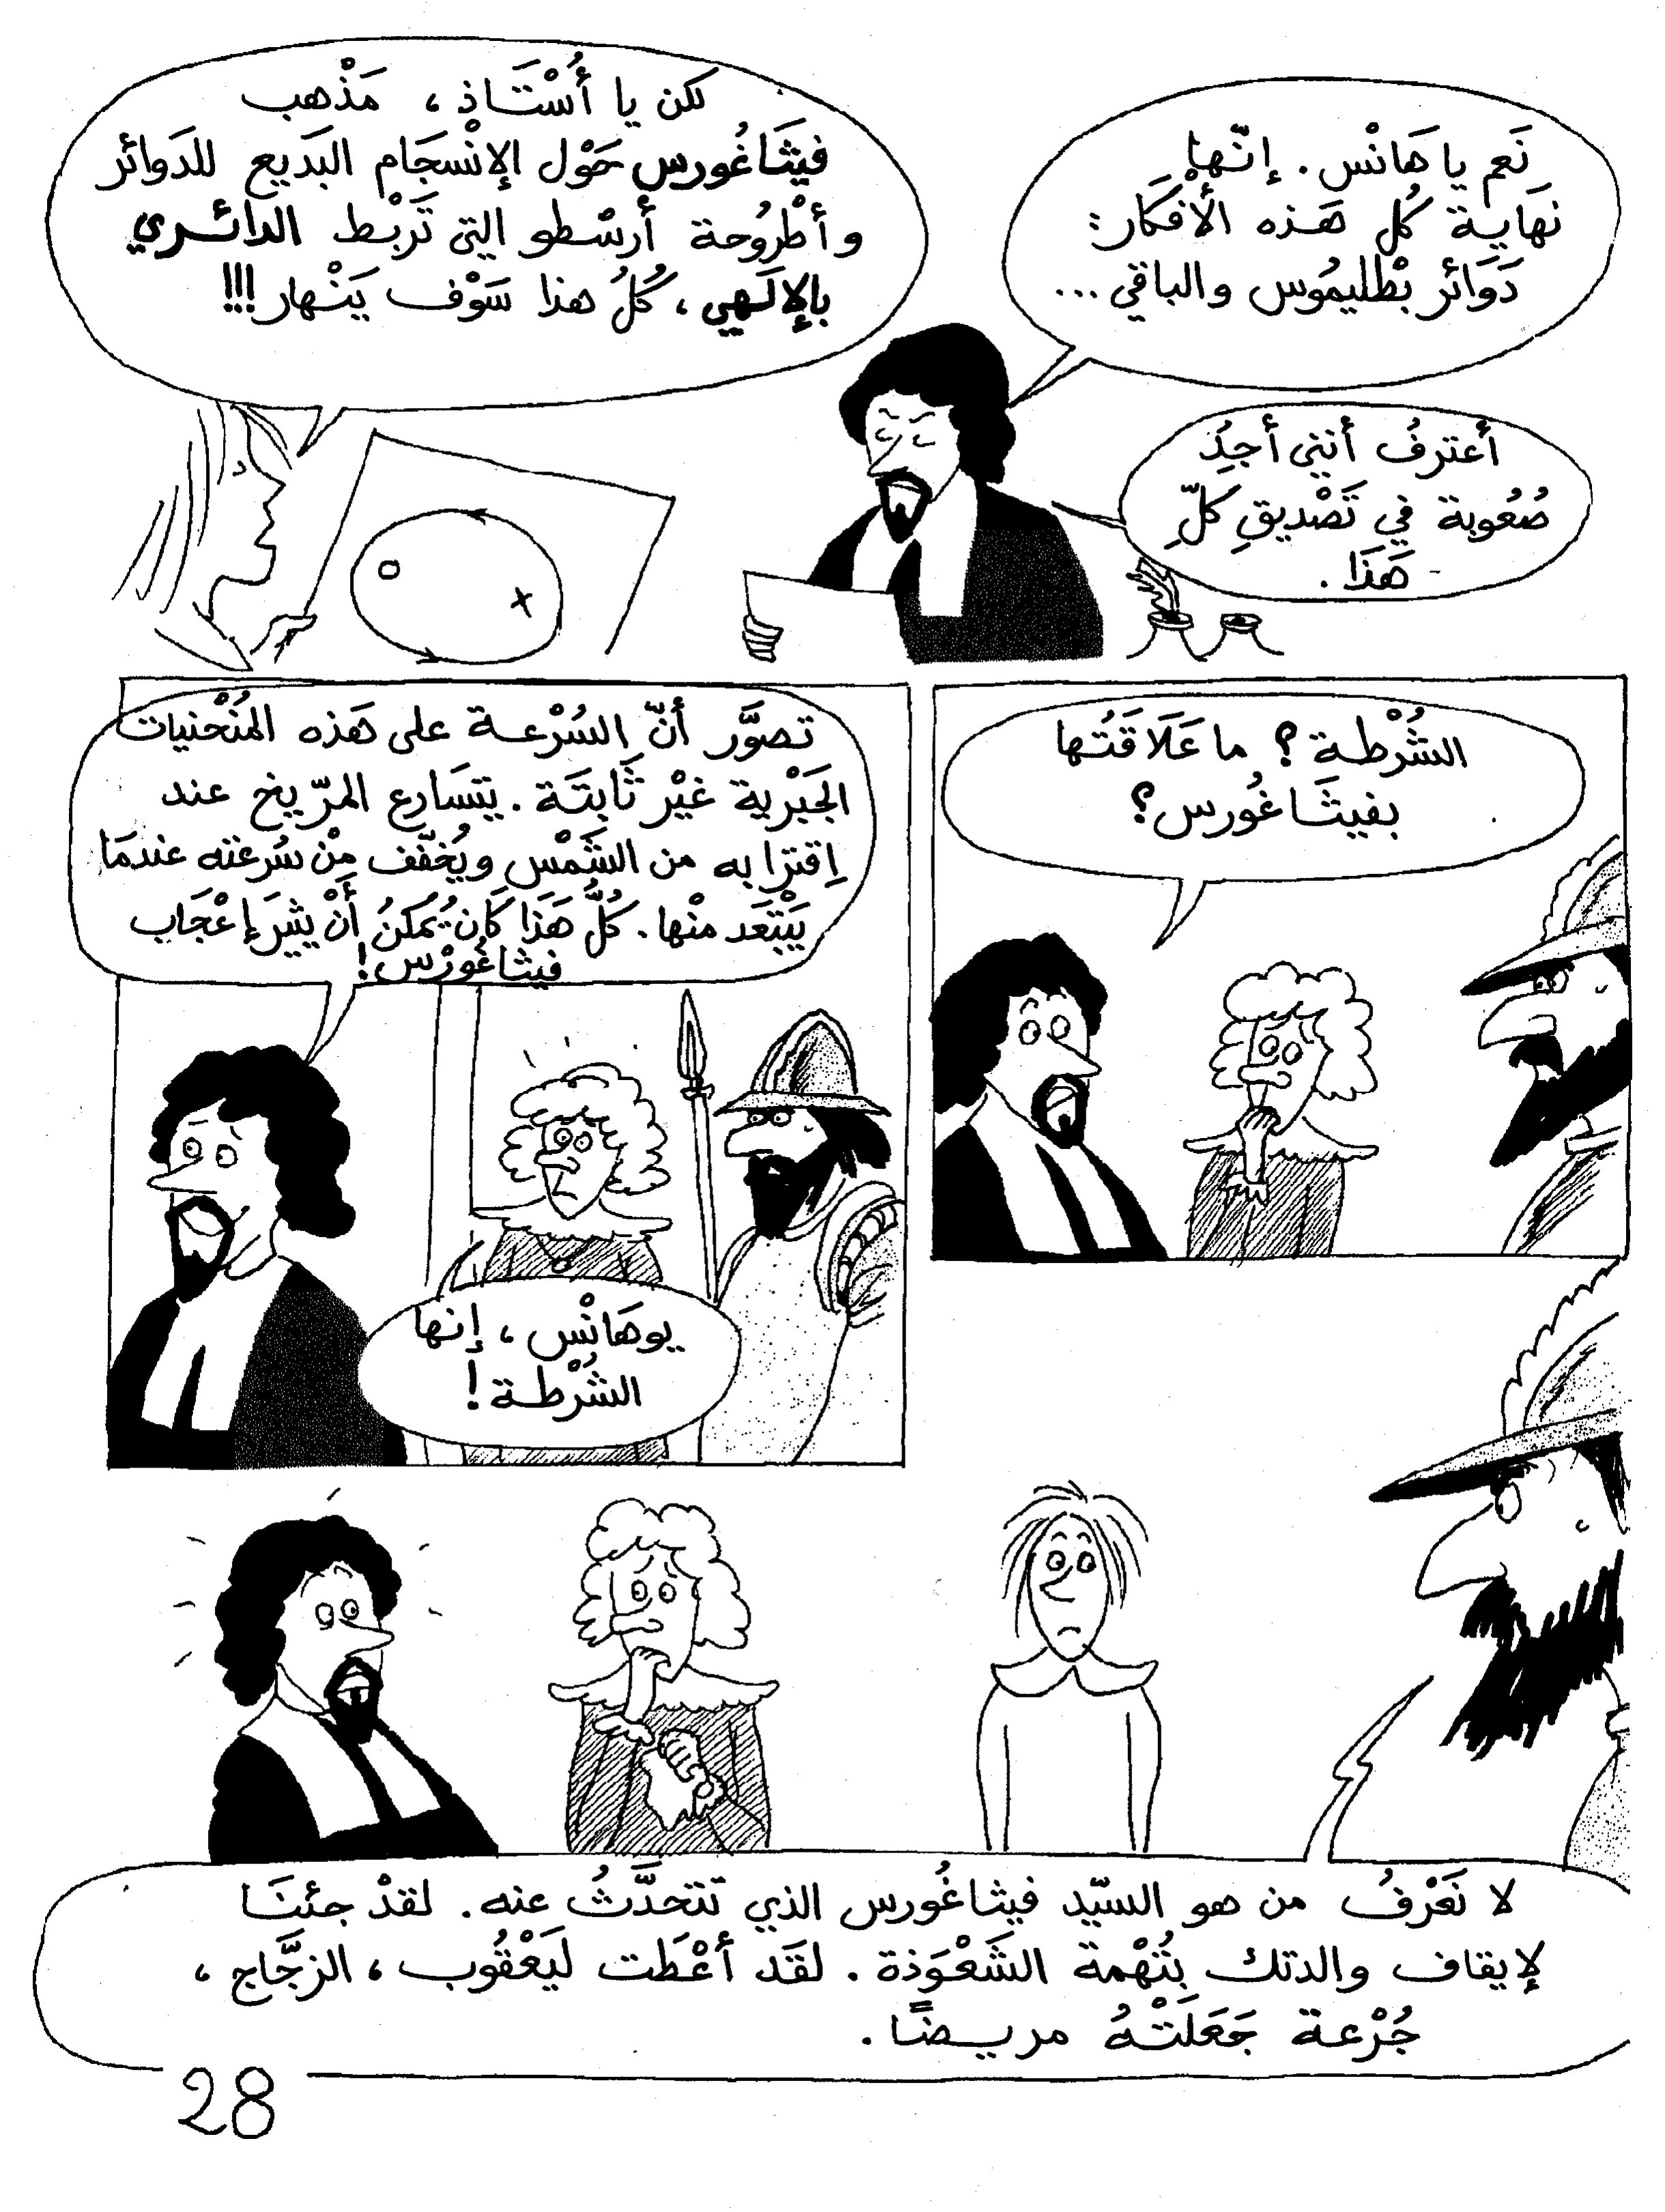 نَعم يا هَانْس. إنّها
نهَاية كُل هَذه الأفْكَار:
دَوَائر بْطليمُوس والباقي...
لكن يا أُسْتَاذ، مَذْهب
فيثَاغُورس حَوْل الإنْسجَام البَديع للدَوائر
وأطْرُوحة أرسْطو التي تَرْبْط الدَائري
بالإلَهي، كُلُ هذا سَوْف يَنْهار!!!
أعترفُ أنني أجِدُ
صُعُوبة في تَصْديقِ كلِّ
هَذَا.
الشُرْطة؟ ما عَلَاقَتُها
بفيثَاغُورس؟
تصوَّر أنّ السُرْعة على هَذه المُنْحْنيات
الجَبْرية غيْر ثَابتَة. يتسَارع المرّيخ عند
اِقترابه من الشَمْس ويُخفّف مِنْ سُرعته عندمَا
يَبْتَعَد منْها. كُلُّ هَذَا كَان يُمَكنُ أَنْ يثيرَ إعْجَاب
فيثاغُورْس!
يوهَانْس، إنها
الشُرْطة!
لا نَعْرفُ من هو السيّد فيثاغُورس الذي تتحدَّثُ عنه. لقدْ جئنَا
لإيقاف والدتك بتُهْمة الشَعْوَذة. لقَد أعْطَت ليَعْقُوب، الزجَّاج،
جُرْعة جَعَلَتْهُ مريضًا.
28